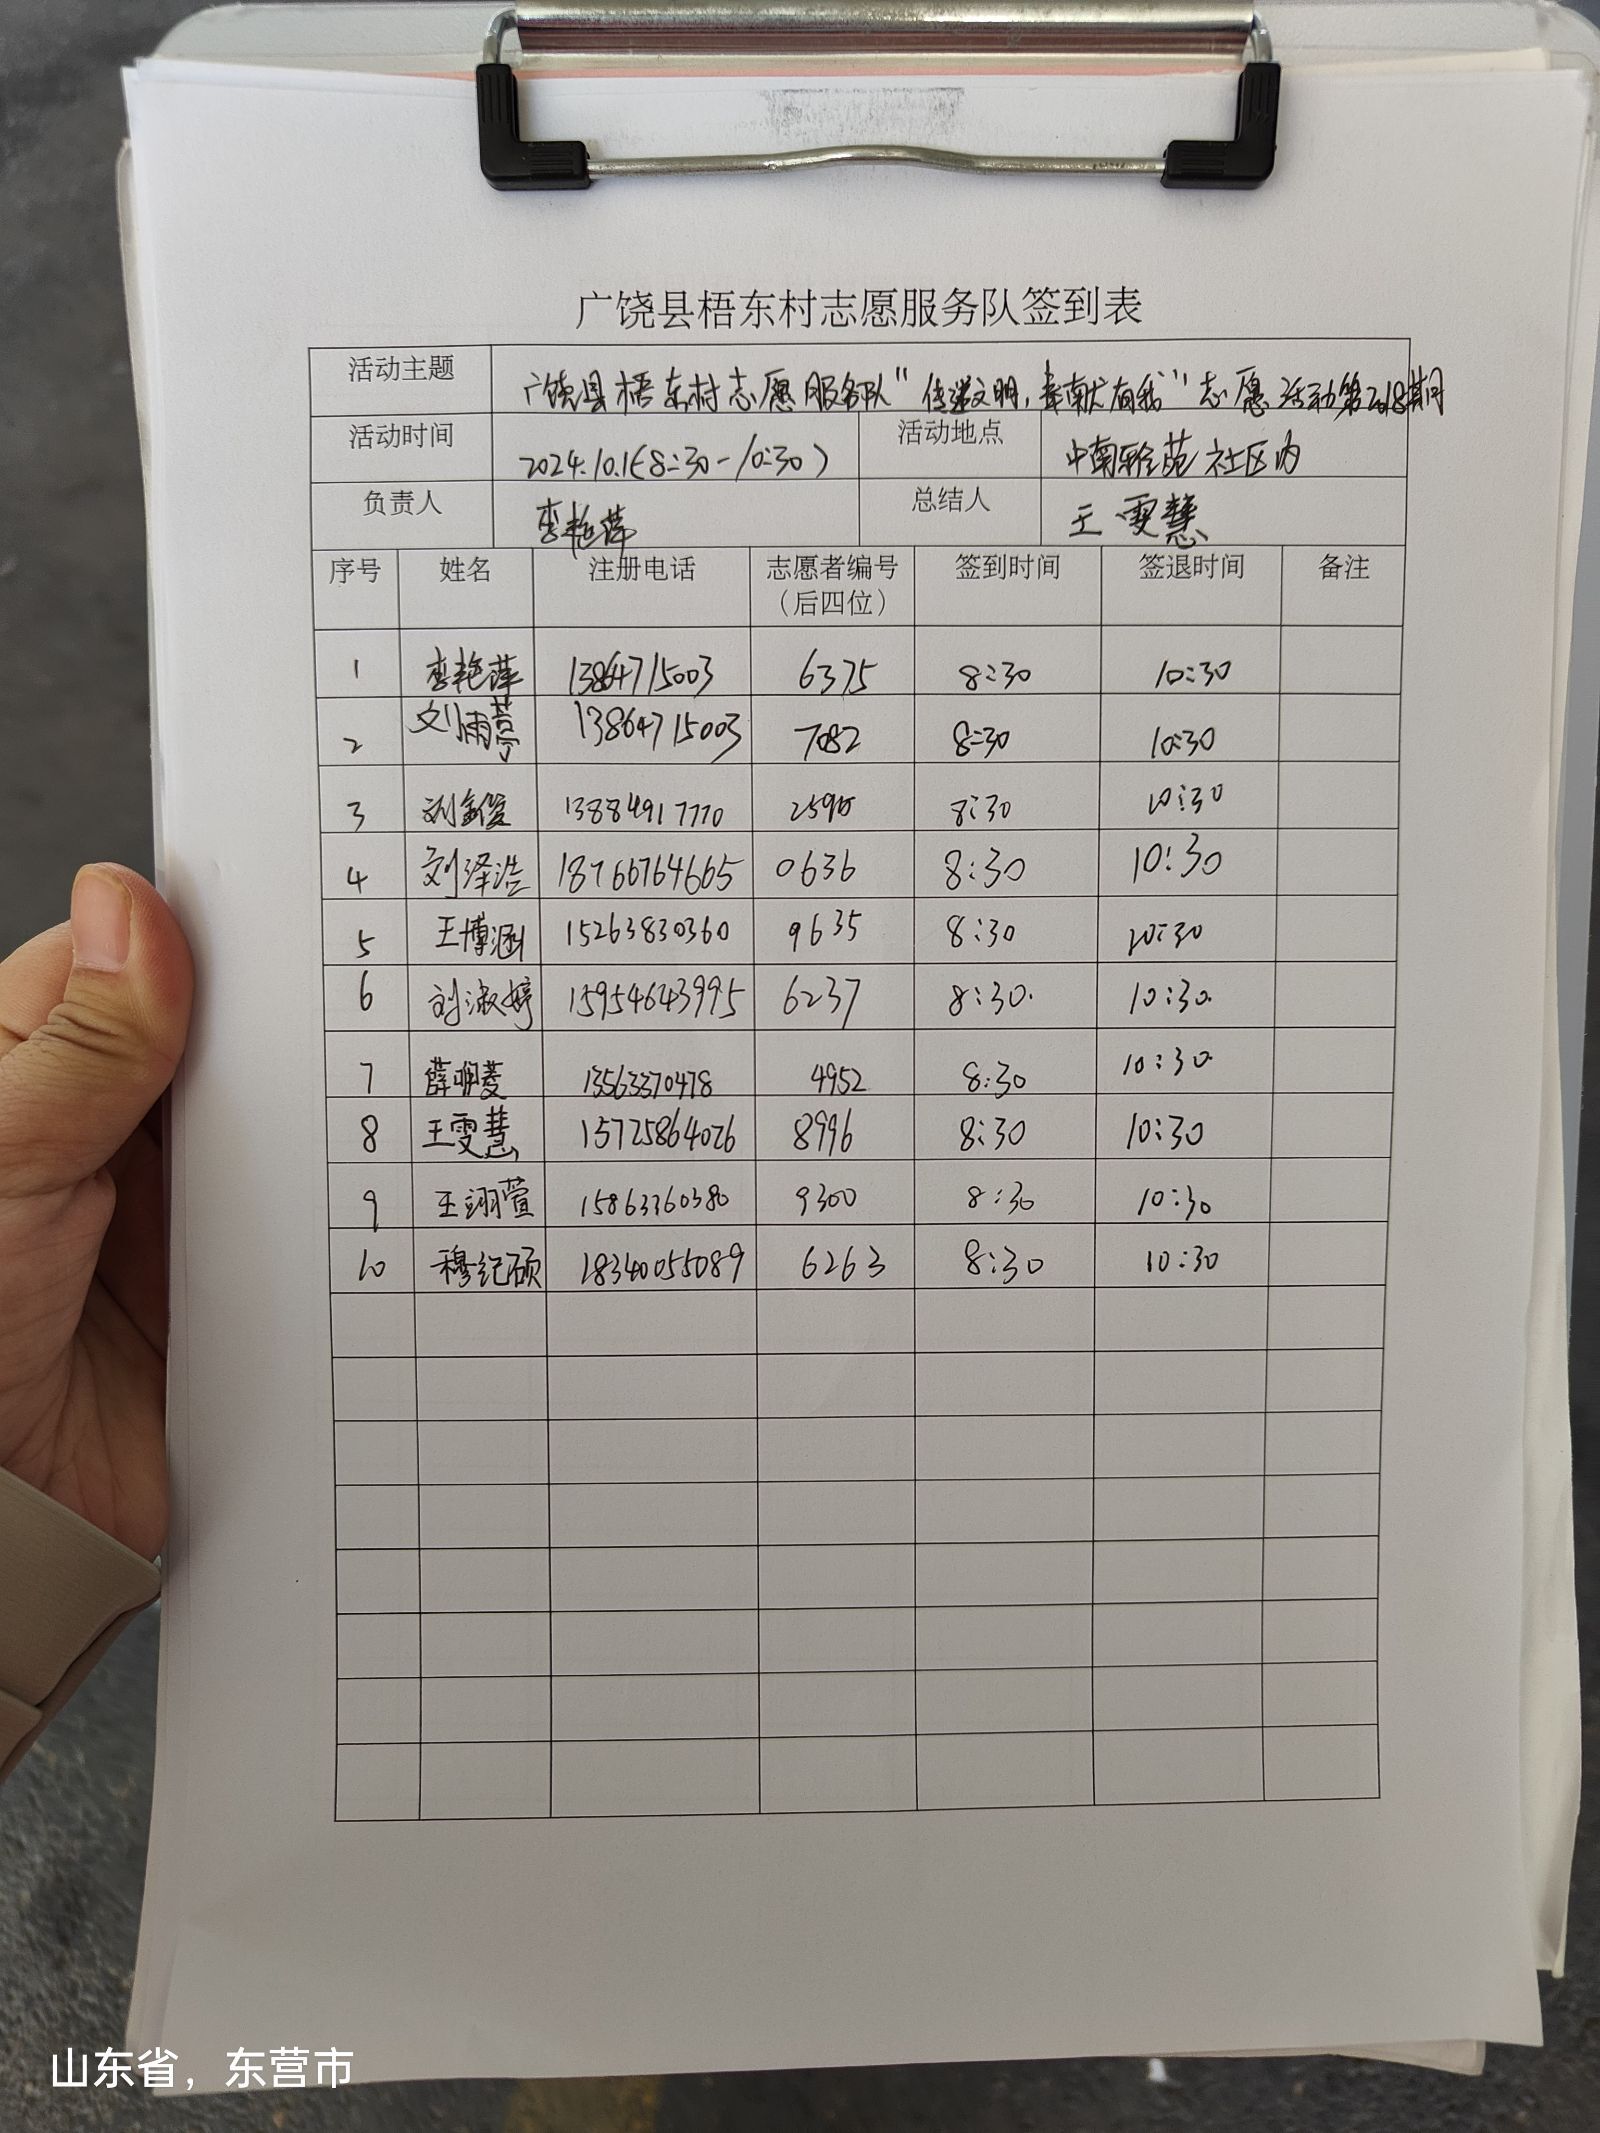 广饶县梧东村志愿服务队签到表
活动主题 广饶县梧东村志愿服务队“传递文明,奉献有我”志愿活动第2018期
活动时间 2024.10.1(8:30-10:30) 活动地点 中南雅苑社区内
负责人 李艳萍 总结人 王雯慧
序号 姓名 注册电话 志愿者编号 签到时间 签退时间 备注
(后四位)
1 李艳萍 13864715003 6375 8:30 10:30
2 刘雨葶 13864715003 7082 8:30 10:30
3 刘鑫俊 13884917770 8:30 10:30
4 刘泽浩 18766764665 0636 8:30 10:30
5 王博涵 15263830360 9635 8:30 10:30
6 刘淑婷 15954643995 6237 8:30 10:30
7 薛明菱 13563370478 4952 8:30 10:30
8 王雯慧 15725864026 8996 8:30 10:30
9 王翊萱 15863360380 9300 8:30 10:30
10 穆纪硕 18340055089 6263 8:30 10:30
山东省，东营市